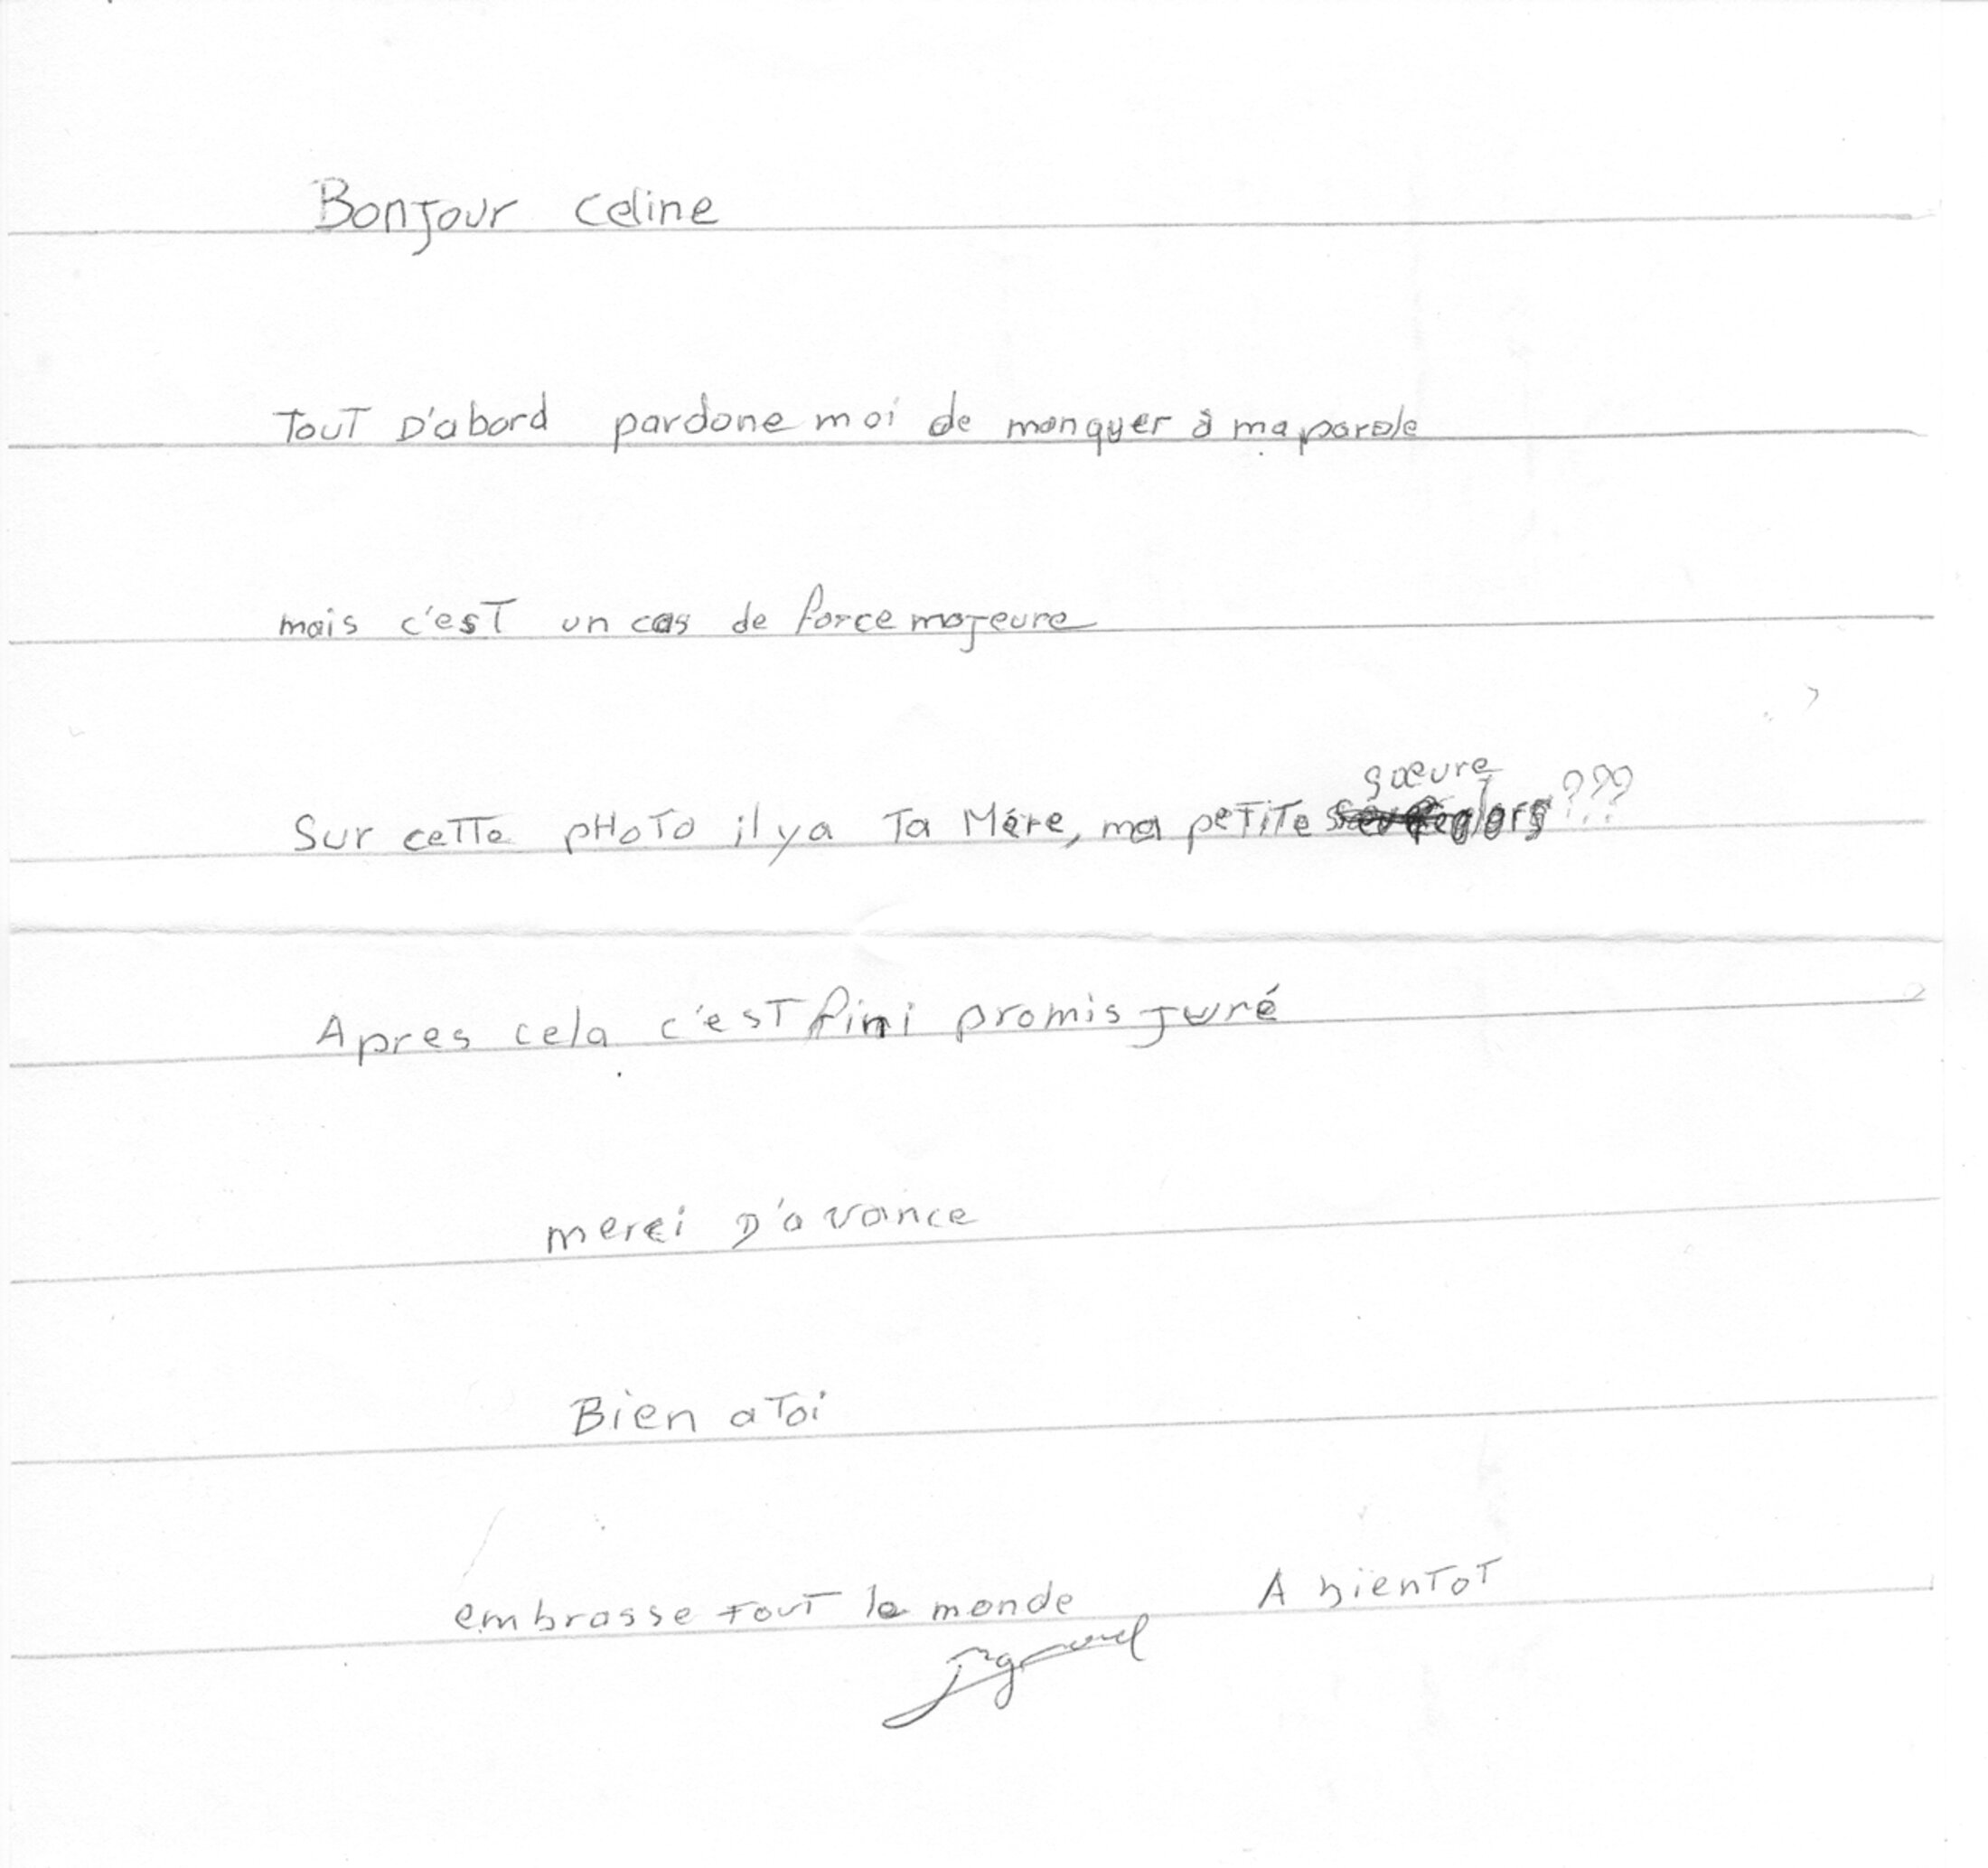 Bonjour Celine
Tout D'abord pardone moi de manquer à ma parole
mais c'est un cas de force majeure
sœure
Sur cette pHoTo il ya Ta Mére, ma petite alors ???
Apres cela c'est fini promis juré
merci D'avance
Bien a Toi
embrasse tout le monde A bientot